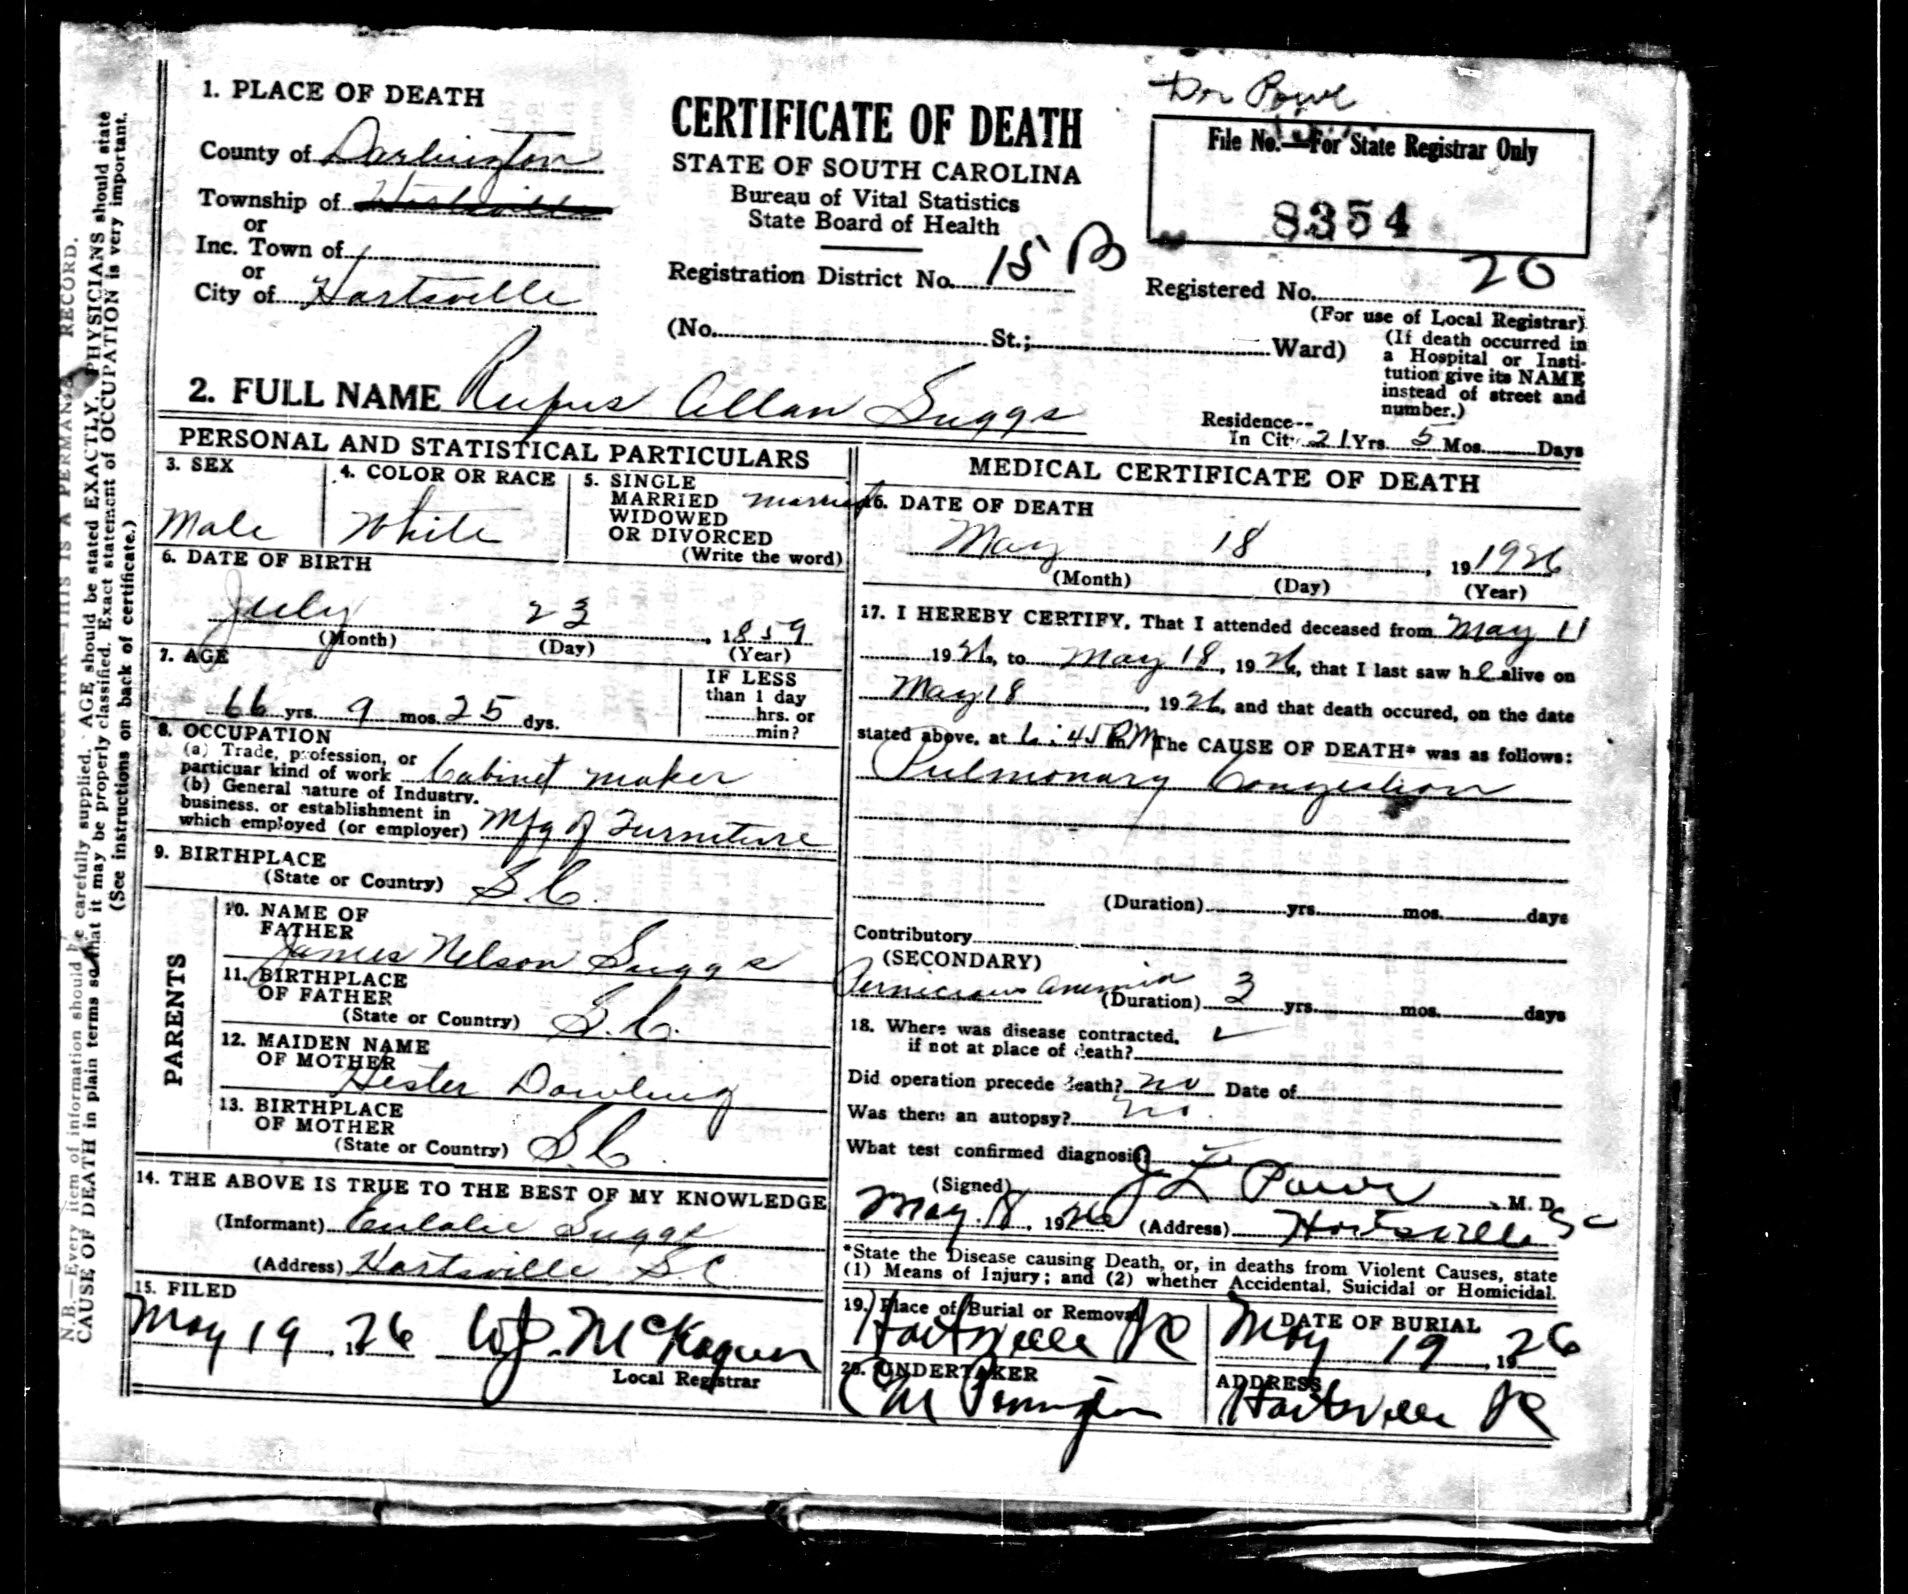 Dr Powe
1. PLACE OF DEATH
County of Darlington
Township of Hartsville
or
Inc. Town of
or
City of Hartsville
CERTIFICATE OF DEATH
STATE OF SOUTH CAROLINA
Bureau of Vital Statistics
State Board of Health
Registration District No. 15 B
(No. St.; Ward)
File No.—For State Registrar Only
8354
Registered No. 20
(For use of Local Registrar)
(If death occurred in
a Hospital or Insti-
tution give its NAME
instead of street and
number.)
2. FULL NAME Rufus Allan Suggs
Residence--
In City 21 Yrs. 5 Mos. Days
PERSONAL AND STATISTICAL PARTICULARS
3. SEX
Male
4. COLOR OR RACE
White
5. SINGLE
MARRIED
WIDOWED
OR DIVORCED
(Write the word)
Married
6. DATE OF BIRTH
July 23, 1859
(Month) (Day) (Year)
7. AGE
66 yrs. 9 mos. 25 dys.
IF LESS
than 1 day
hrs. or
min?
8. OCCUPATION
(a) Trade, profession, or
particuar kind of work Cabinet maker
(b) General nature of Industry,
business, or establishment in
which employed (or employer) Mfg of Furniture
9. BIRTHPLACE
(State or Country) S.C.
PARENTS
10. NAME OF
FATHER
James Nelson Suggs
11. BIRTHPLACE
OF FATHER
(State or Country) S.C.
12. MAIDEN NAME
OF MOTHER
Hester Dowling
13. BIRTHPLACE
OF MOTHER
(State or Country) S.C.
14. THE ABOVE IS TRUE TO THE BEST OF MY KNOWLEDGE
(Informant) Eulalie Suggs
(Address) Hartsville S.C.
15. FILED
May 19, 1926 W.J. McKagen
Local Registrar
MEDICAL CERTIFICATE OF DEATH
16. DATE OF DEATH
May 18, 19 1926
(Month) (Day) (Year)
17. I HEREBY CERTIFY, That I attended deceased from May 11
1926, to May 18, 1926, that I last saw he alive on
May 18, 1926, and that death occured, on the date
stated above, at 6:45 P.M The CAUSE OF DEATH* was as follows:
Pulmonary Congestion
(Duration) yrs. mos. days
Contributory
(SECONDARY)
Pernicious anemia (Duration) 3 yrs. mos. days
18. Where was disease contracted,
if not at place of death?
Did operation precede death? no Date of
Was there an autopsy? no.
What test confirmed diagnosis?
(Signed) J L Powe, M. D.
May 18, 1926 (Address) Hartsville SC
*State the Disease causing Death, or, in deaths from Violent Causes, state
(1) Means of Injury; and (2) whether Accidental, Suicidal or Homicidal.
19. Place of Burial or Removal
Hartsville SC
DATE OF BURIAL
May 19, 1926
20. UNDERTAKER
ADDRESS
Hartsville SC
N.B.—Every item of information should be carefully supplied. AGE should be stated EXACTLY. PHYSICIANS should state
CAUSE OF DEATH in plain terms so that it may be properly classified. Exact statement of OCCUPATION is very important.
(See instructions on back of certificate.)
THIS IS A PERMANENT RECORD.